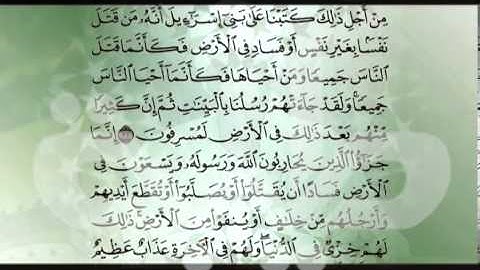 مِنْ أَجْلِ ذَٰلِكَ كَتَبْنَا عَلَىٰ بَنِىٓ إِسْرَٰٓءِيلَ أَنَّهُۥ مَن قَتَلَ
نَفْسًۢا بِغَيْرِ نَفْسٍ أَوْ فَسَادٍ فِى ٱلْأَرْضِ فَكَأَنَّمَا قَتَلَ
ٱلنَّاسَ جَمِيعًا وَمَنْ أَحْيَاهَا فَكَأَنَّمَآ أَحْيَا ٱلنَّاسَ
جَمِيعًا ۚ وَلَقَدْ جَآءَتْهُمْ رُسُلُنَا بِٱلْبَيِّنَـٰتِ ثُمَّ إِنَّ كَثِيرًا
مِّنْهُم بَعْدَ ذَٰلِكَ فِى ٱلْأَرْضِ لَمُسْرِفُونَ ٣٢ إِنَّمَا
جَزَٰٓؤُا۟ ٱلَّذِينَ يُحَارِبُونَ ٱللَّهَ وَرَسُولَهُۥ وَيَسْعَوْنَ فِى
ٱلْأَرْضِ فَسَادًا أَن يُقَتَّلُوٓا۟ أَوْ يُصَلَّبُوٓا۟ أَوْ تُقَطَّعَ أَيْدِيهِمْ
وَأَرْجُلُهُم مِّنْ خِلَـٰفٍ أَوْ يُنفَوْا۟ مِنَ ٱلْأَرْضِ ۚ ذَٰلِكَ
لَهُمْ خِزْىٌ فِى ٱلدُّنْيَا ۖ وَلَهُمْ فِى ٱلْـَٔاخِرَةِ عَذَابٌ عَظِيمٌ